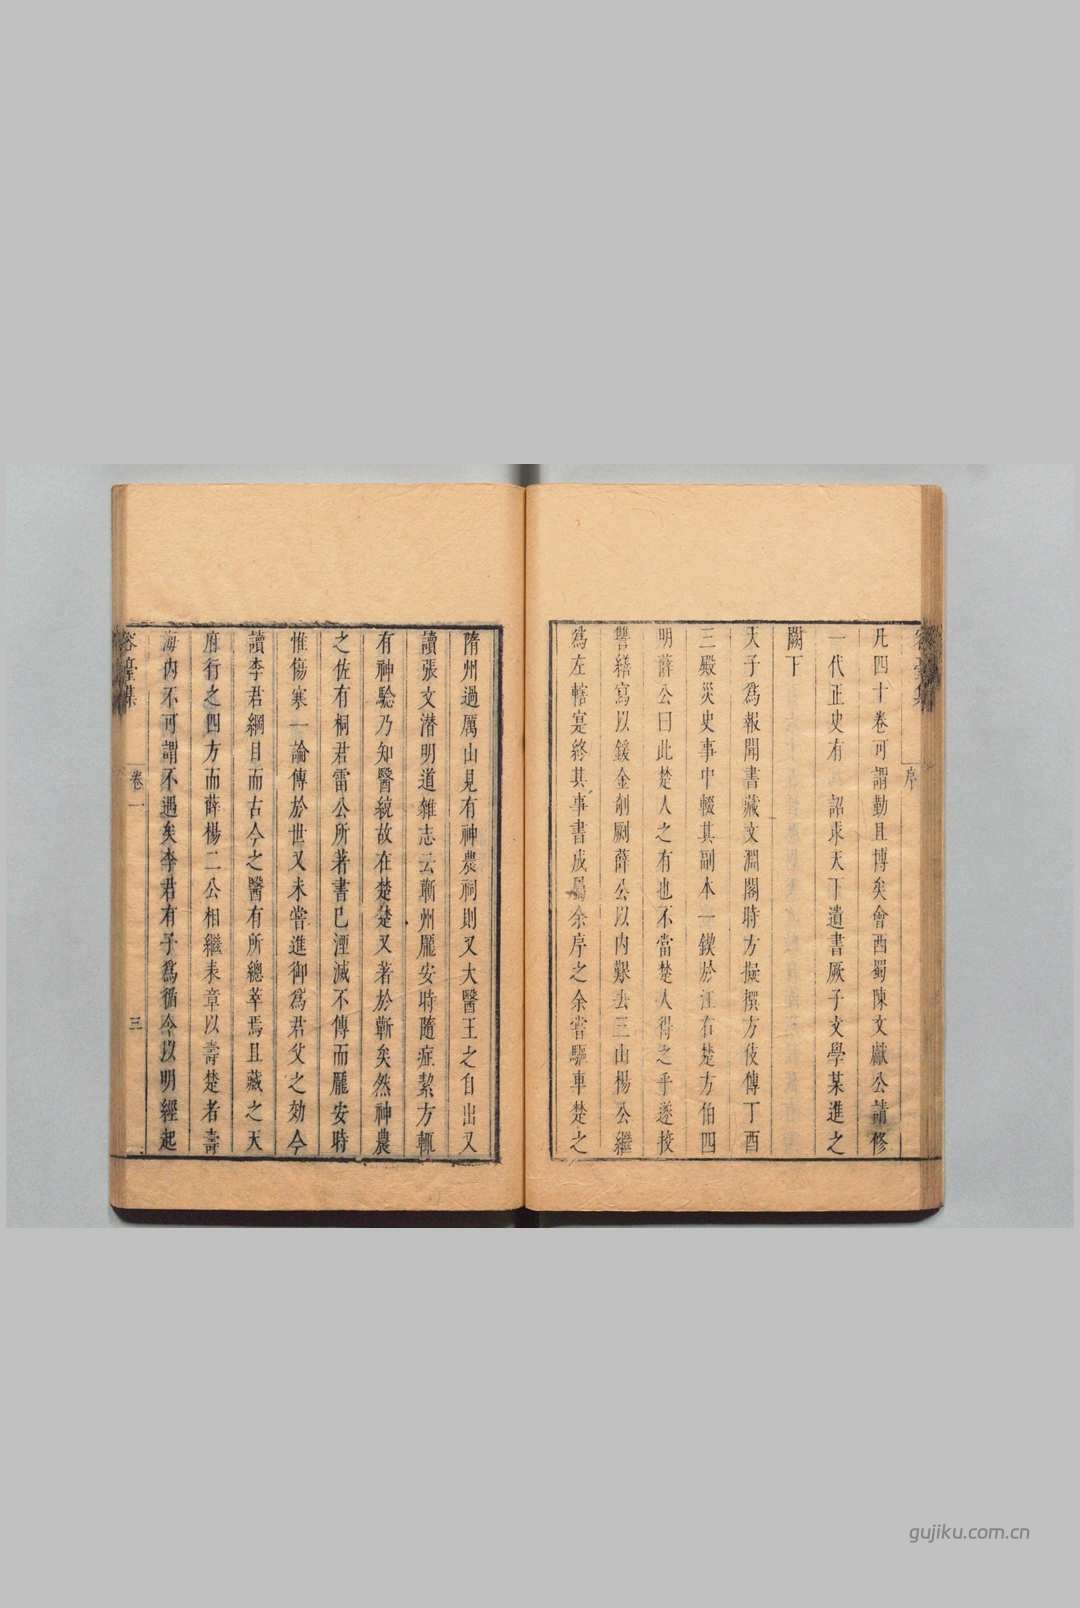 容臺集
序
凡四十卷可謂勤且博矣會西蜀陳文獻公請修
一代正史有 詔求天下遺書厥子文學某進之
闕下
天子為報聞書藏文淵閣時方擬撰方伎傳丁酉
三殿災史事中輟其副本一鋟於江右楚方伯四
明薛公曰此楚人之有也不當楚人得之乎遂授
讐繕寫以鍰金剞劂薛公以內艱去三山楊公繼
為左轄寔終其事書成屬余序之余嘗驅車楚之
隋州過厲山見有神農祠則又大醫王之自出又
讀張文潜明道雜志云蘄州龎安時隨症絜方輒
有神騐乃知醫統故在楚楚又著於蘄矣然神農
之佐有桐君雷公所著書已湮滅不傳而龎安時
惟傷寒一論傳於世又未嘗進御為君父之効今
讀李君綱目而古今之醫有所總萃焉且藏之天
府行之四方而薛楊二公相繼表章以壽楚者壽
海內不可謂不遇矣李君有子為循令以明經起
容臺集
卷一
三